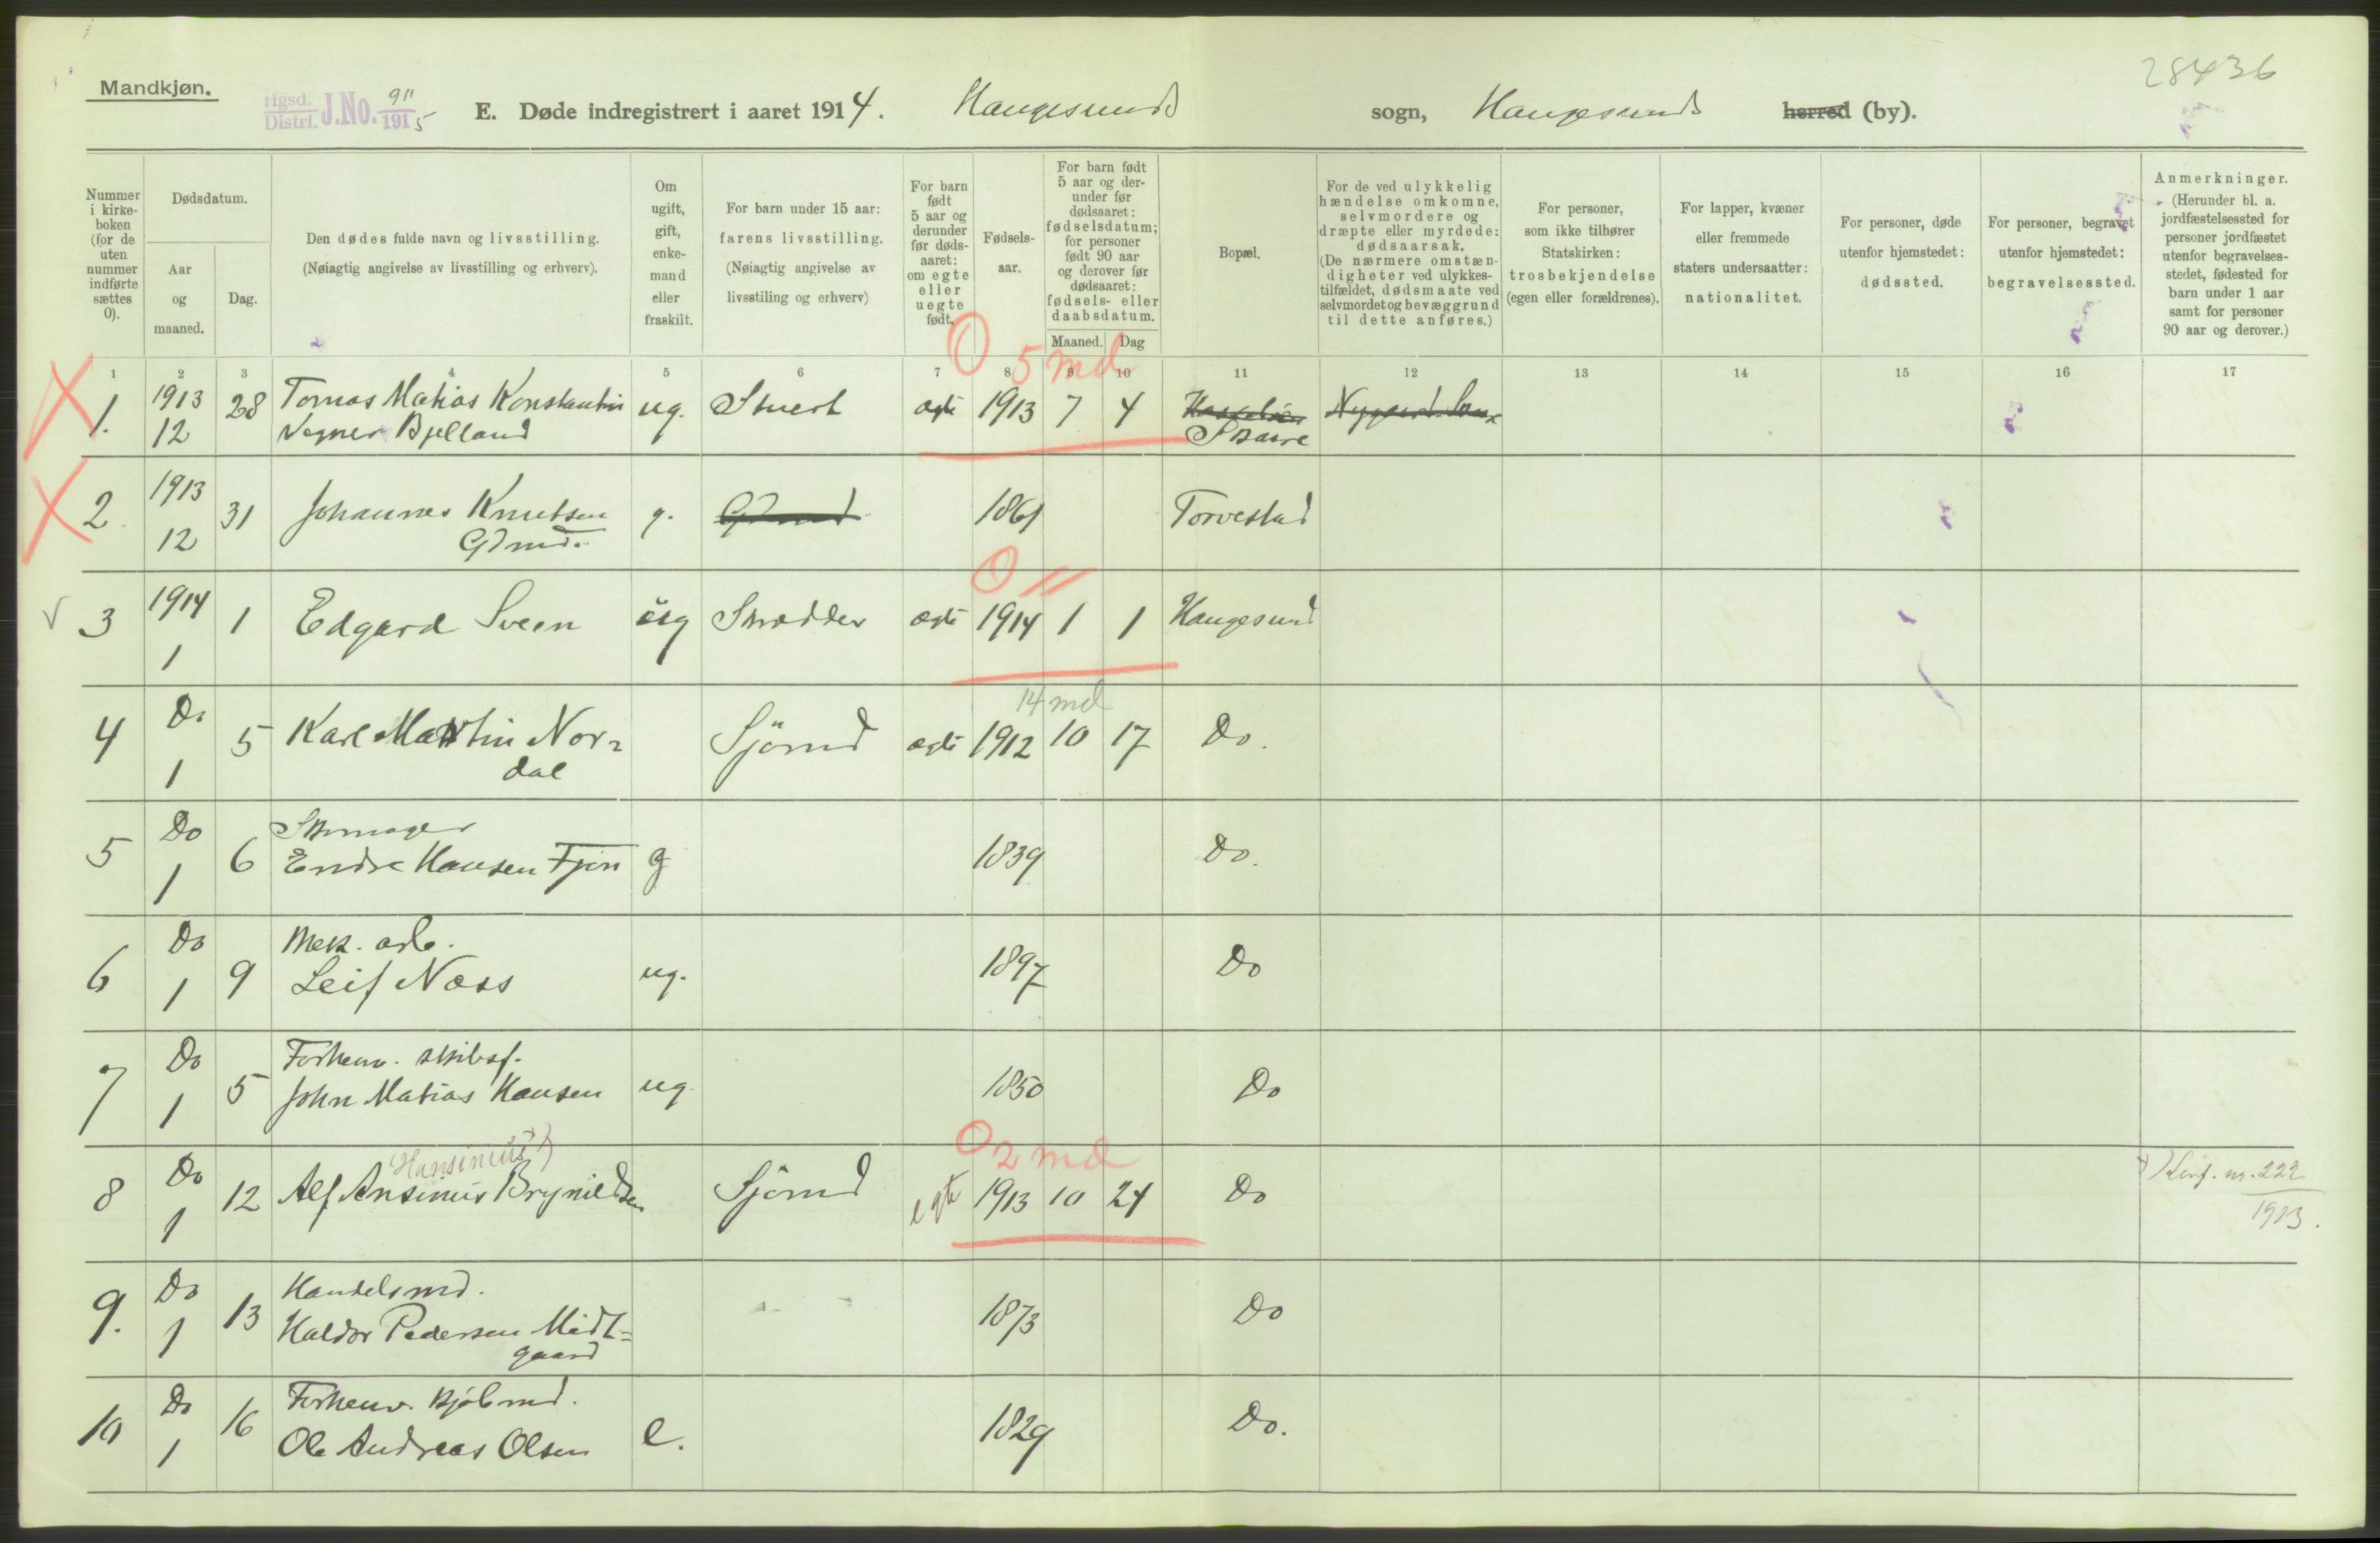 Mandkjøn.
Hgsd. Distri. J.No. 911/1915
E. Døde indregistrert i aaret 1914. Haugesunds sogn, Haugesunds herred (by).
28436
Nummer i kirkeboken (for de uten nummer indførte sættes 0).
Dødsdatum.
Aar og maaned.
Dag.
Den dødes fulde navn og livsstilling.
(Nøiagtig angivelse av livsstilling og erhverv).
Om ugift, gift, enkemand eller fraskilt.
For barn under 15 aar: farens livsstilling.
(Nøiagtig angivelse av livsstiling og erhverv)
For barn født 5 aar og derunder før dødsaaret: om egte eller uegte født.
Fødselsaar.
For barn født 5 aar og derunder før dødsaaret: fødselsdatum; for personer født 90 aar og derover før dødsaaret: fødsels- eller daabsdatum.
Maaned. Dag
Bopæl.
For de ved ulykkelig hændelse omkomne, selvmordere og dræpte eller myrdede: dødsaarsak.
(De nærmere omstændigheter ved ulykkestilfældet, dødsmaate ved selvmordet og bevæggrund til dette anføres.)
For personer, som ikke tilhører Statskirken: trosbekjendelse (egen eller forældrenes).
For lapper, kvæner eller fremmede staters undersaatter: nationalitet.
For personer, døde utenfor hjemstedet: dødssted.
For personer, begravet utenfor hjemstedet: begravelsessted.
Anmerkninger.
(Herunder bl. a. jordfæstelsessted for personer jordfæstet utenfor begravelsesstedet, fødested for barn under 1 aar samt for personer 90 aar og derover.)
1 2 3 4 5 6 7 8 9 10 11 12 13 14 15 16 17
0 5 md
1. 1913 12 28 Tomas Matias Konstantin ug. Stuert egte 1913 7 4
Vegner Bjelland Skaare
2. 1913 12 31 Johannes Knutsen g. 1861 Torvestad
Gdmd.
0 11
3 1914 1 1 Edgard Sveen ug Skrædder egte 1914 1 1 Haugesund
14 md
4 Do 1 5 Karl Martin Nor= Sjømd egte 1912 10 17 Do.
dal
5 Do 1 6 Skomager
Endre Hansen Fjon g 1839 Do.
6 Do 1 9 Mek. arb.
Leif Næss ug. 1897 Do
7 Do 1 5 Forhenv. skibsf.
John Matias Hansen ug 1850 Do
0 2 md
Hansinius x)
8 Do 1 12 Alf Ansinius Brynildsen Sjømd egte 1913 10 24 Do x) Konf. nr. 222
1913.
9. Do 1 13 Handelsmd.
Haldor Pedersen Midt= 1873 Do
gaard
10 Do 1 16 Forhenv. kjøbmd.
Ole Andreas Olsen e. 1829 Do.